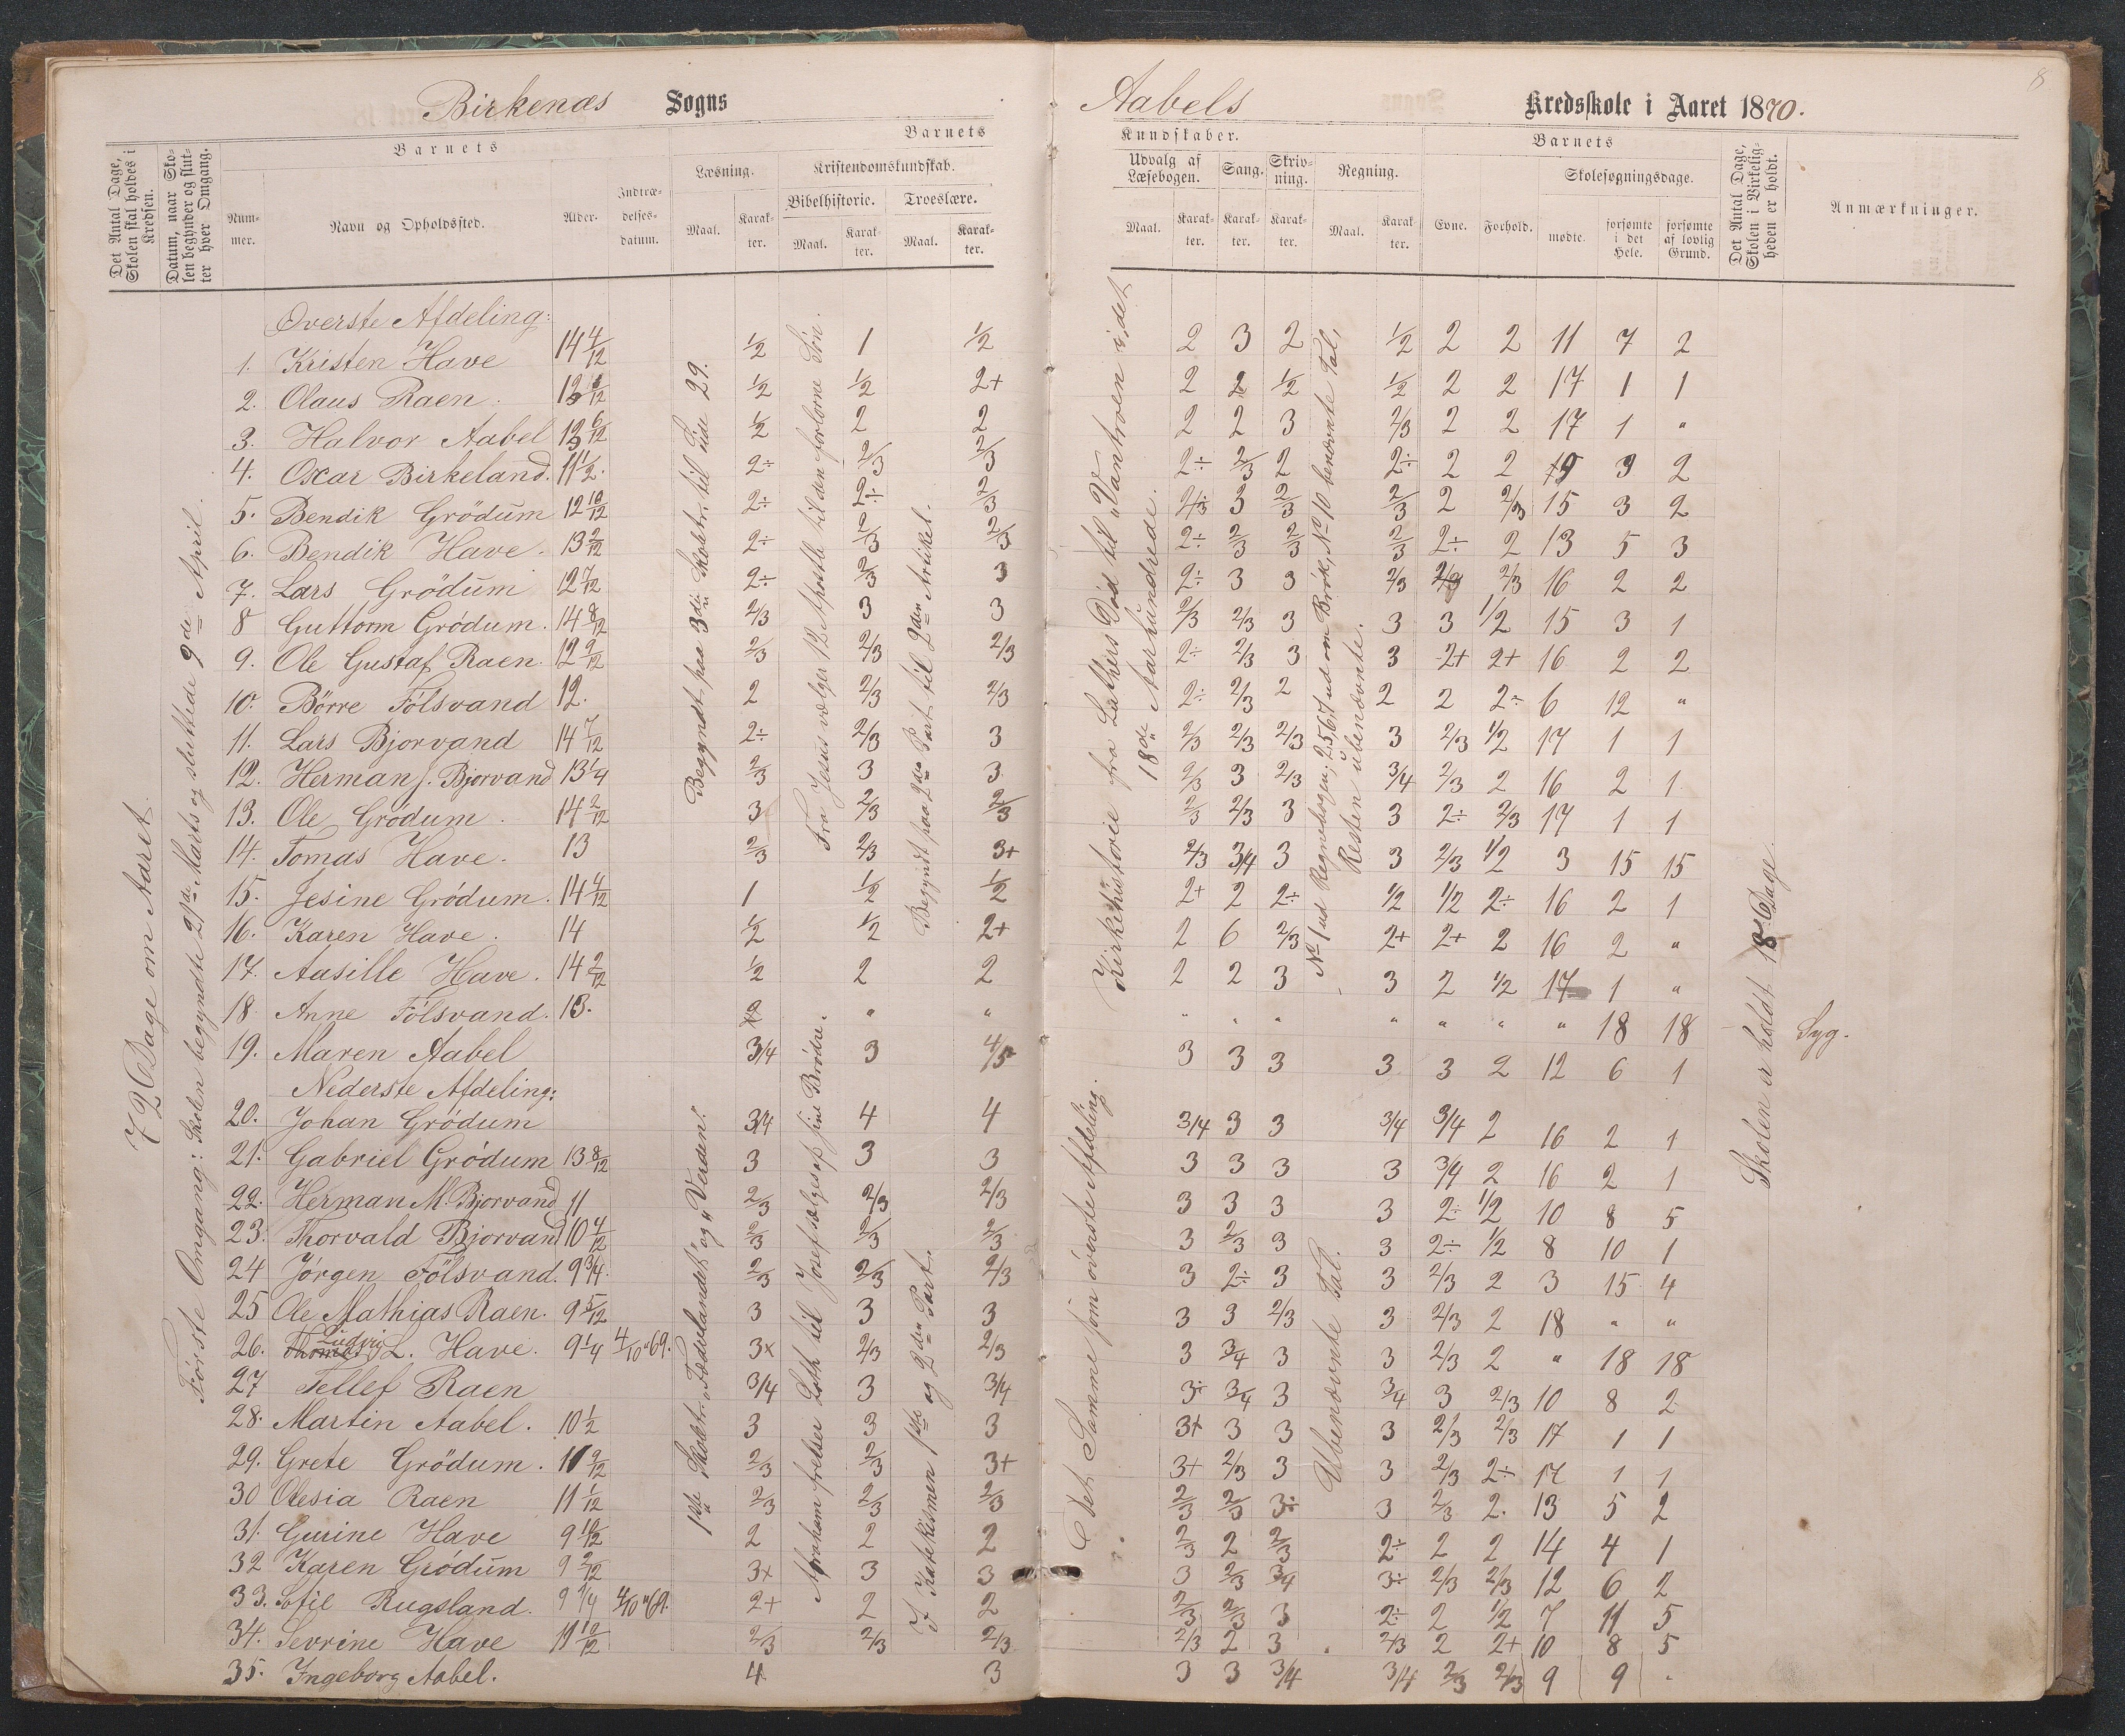 8
Birkenæs Sogns
Aabels Kredsskole i Aaret 1870.
Det Antal Dage, Skolen skal holdes i Kredsen.
Datum, naar Skolen begynder og slutter hver Omgang.
Barnets
Nummer.
Navn og Opholdssted.
Alder.
Indtrædelsesdatum.
Barnets
Læsning.
Maal.
Karakter.
Kristendomskundskab.
Bibelhistorie.
Maal.
Karakter.
Troeslære.
Maal.
Karakter.
Kundskaber.
Udvalg af Læsebogen.
Maal.
Karakter.
Sang.
Karakter.
Skrivning.
Karakter.
Regning.
Maal.
Karakter.
Barnets
Evne.
Forhold.
Skolesøgningsdage.
mødte.
forsømte i det Hele.
forsømte af lovlig Grund.
Det Antal Dage, Skolen i Virkeligheden er holdt.
Anmærkninger.
72 Dage om Aaret.
Første Omgang: Skolen begyndte 21de Marts og sluttede 9de April.
Begyndt paa 3die Skoletr. til Side 29.
Fra Jesus vælger 12 Apostle til den forlorne Søn.
Begyndt paa 2den Part til 2den Artikel.
Kirkehistorie fra Luthers Død til „Vantroen i det 18de Aarhundrede.
No 1 ud Regnebogen; 2 5 6 7 ud om Brök, No 10 benævnte Tal, Resten ubenævnte.
Skolen er holdt 18 Dage.
Øverste Afdeling:
1. Kristen Have 14 4/12 1/2 1 1/2 2 3 2 1/2 2 2 11 7 2
2. Olaus Raen. 1/2 1/2 2+ 2 2 1/2 1/2 2 2 17 1 1
3. Halvor Aabel 12 6/12 1/2 2 2 2 2 3 2/3 2 2 17 1 "
4. Oscar Birkeland. 11 1/2. 2÷ 2/3 2/3 2÷ 2/3 2 2÷ 2 2 3 2
5. Bendik Grödum 12 10/12 2÷ 2÷ 2/3 2/3 3 2/3 2/3 2 2/3 15 3 2
6. Bendik Have. 13 2/12 2÷ 2/3 2/3 2÷ 2/3 2/3 2/3 2÷ 2 13 5 3
7. Lars Grödum 12 7/12 2÷ 2/3 3 2÷ 3 3 2/3 2/3 2/3 16 2 2
8 Guttorm Grödum. 14 8/12 2/3 3 3 2/3 2/3 3 3 3 1/2 15 3 1
9. Ole Gustaf Raen. 12 9/12 2/3 2/3 2/3 2÷ 2/3 3 3 2+ 2+ 16 2 2
10. Börre Fölsvand 12. 2 2/3 2/3 2÷ 2/3 2 2 2 2÷ 6 12 "
11. Lars Bjorvand 14 7/12 2÷ 2/3 3 2/3 2/3 2/3 3 2/3 1/2 17 1 1
12. Herman J. Bjorvand 13 1/4 2/3 3 3 2/3 3 2/3 3/4 2/3 2 16 2 1
13. Ole Grödum. 14 2/12 3 2/3 2/3 2/3 2/3 3 3 2÷ 2/3 17 1 1
14. Tomas Have. 13 2/3 2/3 3+ 2/3 3/4 3 3 2/3 1/2 3 15 15
15. Jesine Grödum. 14 4/12 1 1/2 1/2 2+ 2 2÷ 1/2 1/2 2÷ 16 2 1
16. Karen Have. 14 1/2 1/2 2+ 2 6 2/3 2+ 2+ 2 16 2 "
17. Aasille Have. 14 2/12 1/2 2 2 2 2 3 3 2 1/2 17 1 "
18. Anne Fölsvand. 13. 2 " " " " " " " " " 18 18 Syg.
19. Maren Aabel 3/4 3 4/5 3 3 3 3 3 2 12 6 1
Nederste Afdeling:
1ste Skoletr. „Fædrelandet" og „Verden".
Abraham frelser Loth til Josef sælges af sine Brödre.
I Katekismen 1ste og 2den Part.
Det Samme som överste Afdeling.
Ubenævnte Tal.
20. Johan Grödum 3/4 4 4 3/4 3 3 3/4 3/4 2 16 2 1
21. Gabriel Grödum 13 8/12 3 3 3 3 3 3 3 3/4 2 16 2 1
22. Herman M. Bjorvand 11 2/3 2/3 2/3 3 3 3 3 2÷ 1/2 10 8 5
23. Thorvald Bjorvand 10 4/12 2/3 2/3 2/3 3 2/3 3 3 2÷ 1/2 8 10 1
24 Jörgen Fölsvand. 9 3/4. 2/3 2/3 2/3 3 2÷ 3 3 2/3 2 3 15 4
25 Ole Mathias Raen. 9 5/12 3 3 3 3 3 2/3 3 2/3 2 18 " "
26. Ludvig L. Have. 9 1/4 4/10 "69. 3x 2/3 2/3 3 3/4 3 3 2/3 2 " 18 18
27 Tellef Raen 3/4 3 3/4 3÷ 3/4 3 3/4 3 2/3 10 8 2
28. Martin Aabel. 10 1/2 3 3 3 3+ 3 3 3 2/3 2/3 17 1 1
29. Grete Grödum. 11 9/12 2/3 2/3 3+ 3+ 2/3 3 3 2/3 2÷ 17 1 1
30 Olesia Raen 11 1/12 2/3 2/3 2/3 2/3 2/3 3÷ 3 2/3 2. 13 5 2
31. Gurine Have 9 10/12 2 2 2 2/3 2 2/3 2÷ 2 2 14 4 1
32 Karen Grödum 9 2/12 3x 3 3 3 2/3 3/4 3÷ 2/3 2/3 12 6 2
33. Sofie Rugsland. 9 1/4 4/10 "69. 2+ 2 2 2/3 2/3 3 2÷ 2 1/2 7 11 5
34. Sevrine Have 11 10/12 2/3 2/3 2/3 2/3 2 3 2/3 2 2+ 10 8 5
35. Ingeborg Aabel. 4 3 3 3 3/4 3/4 2/3 2/3 9 9 "